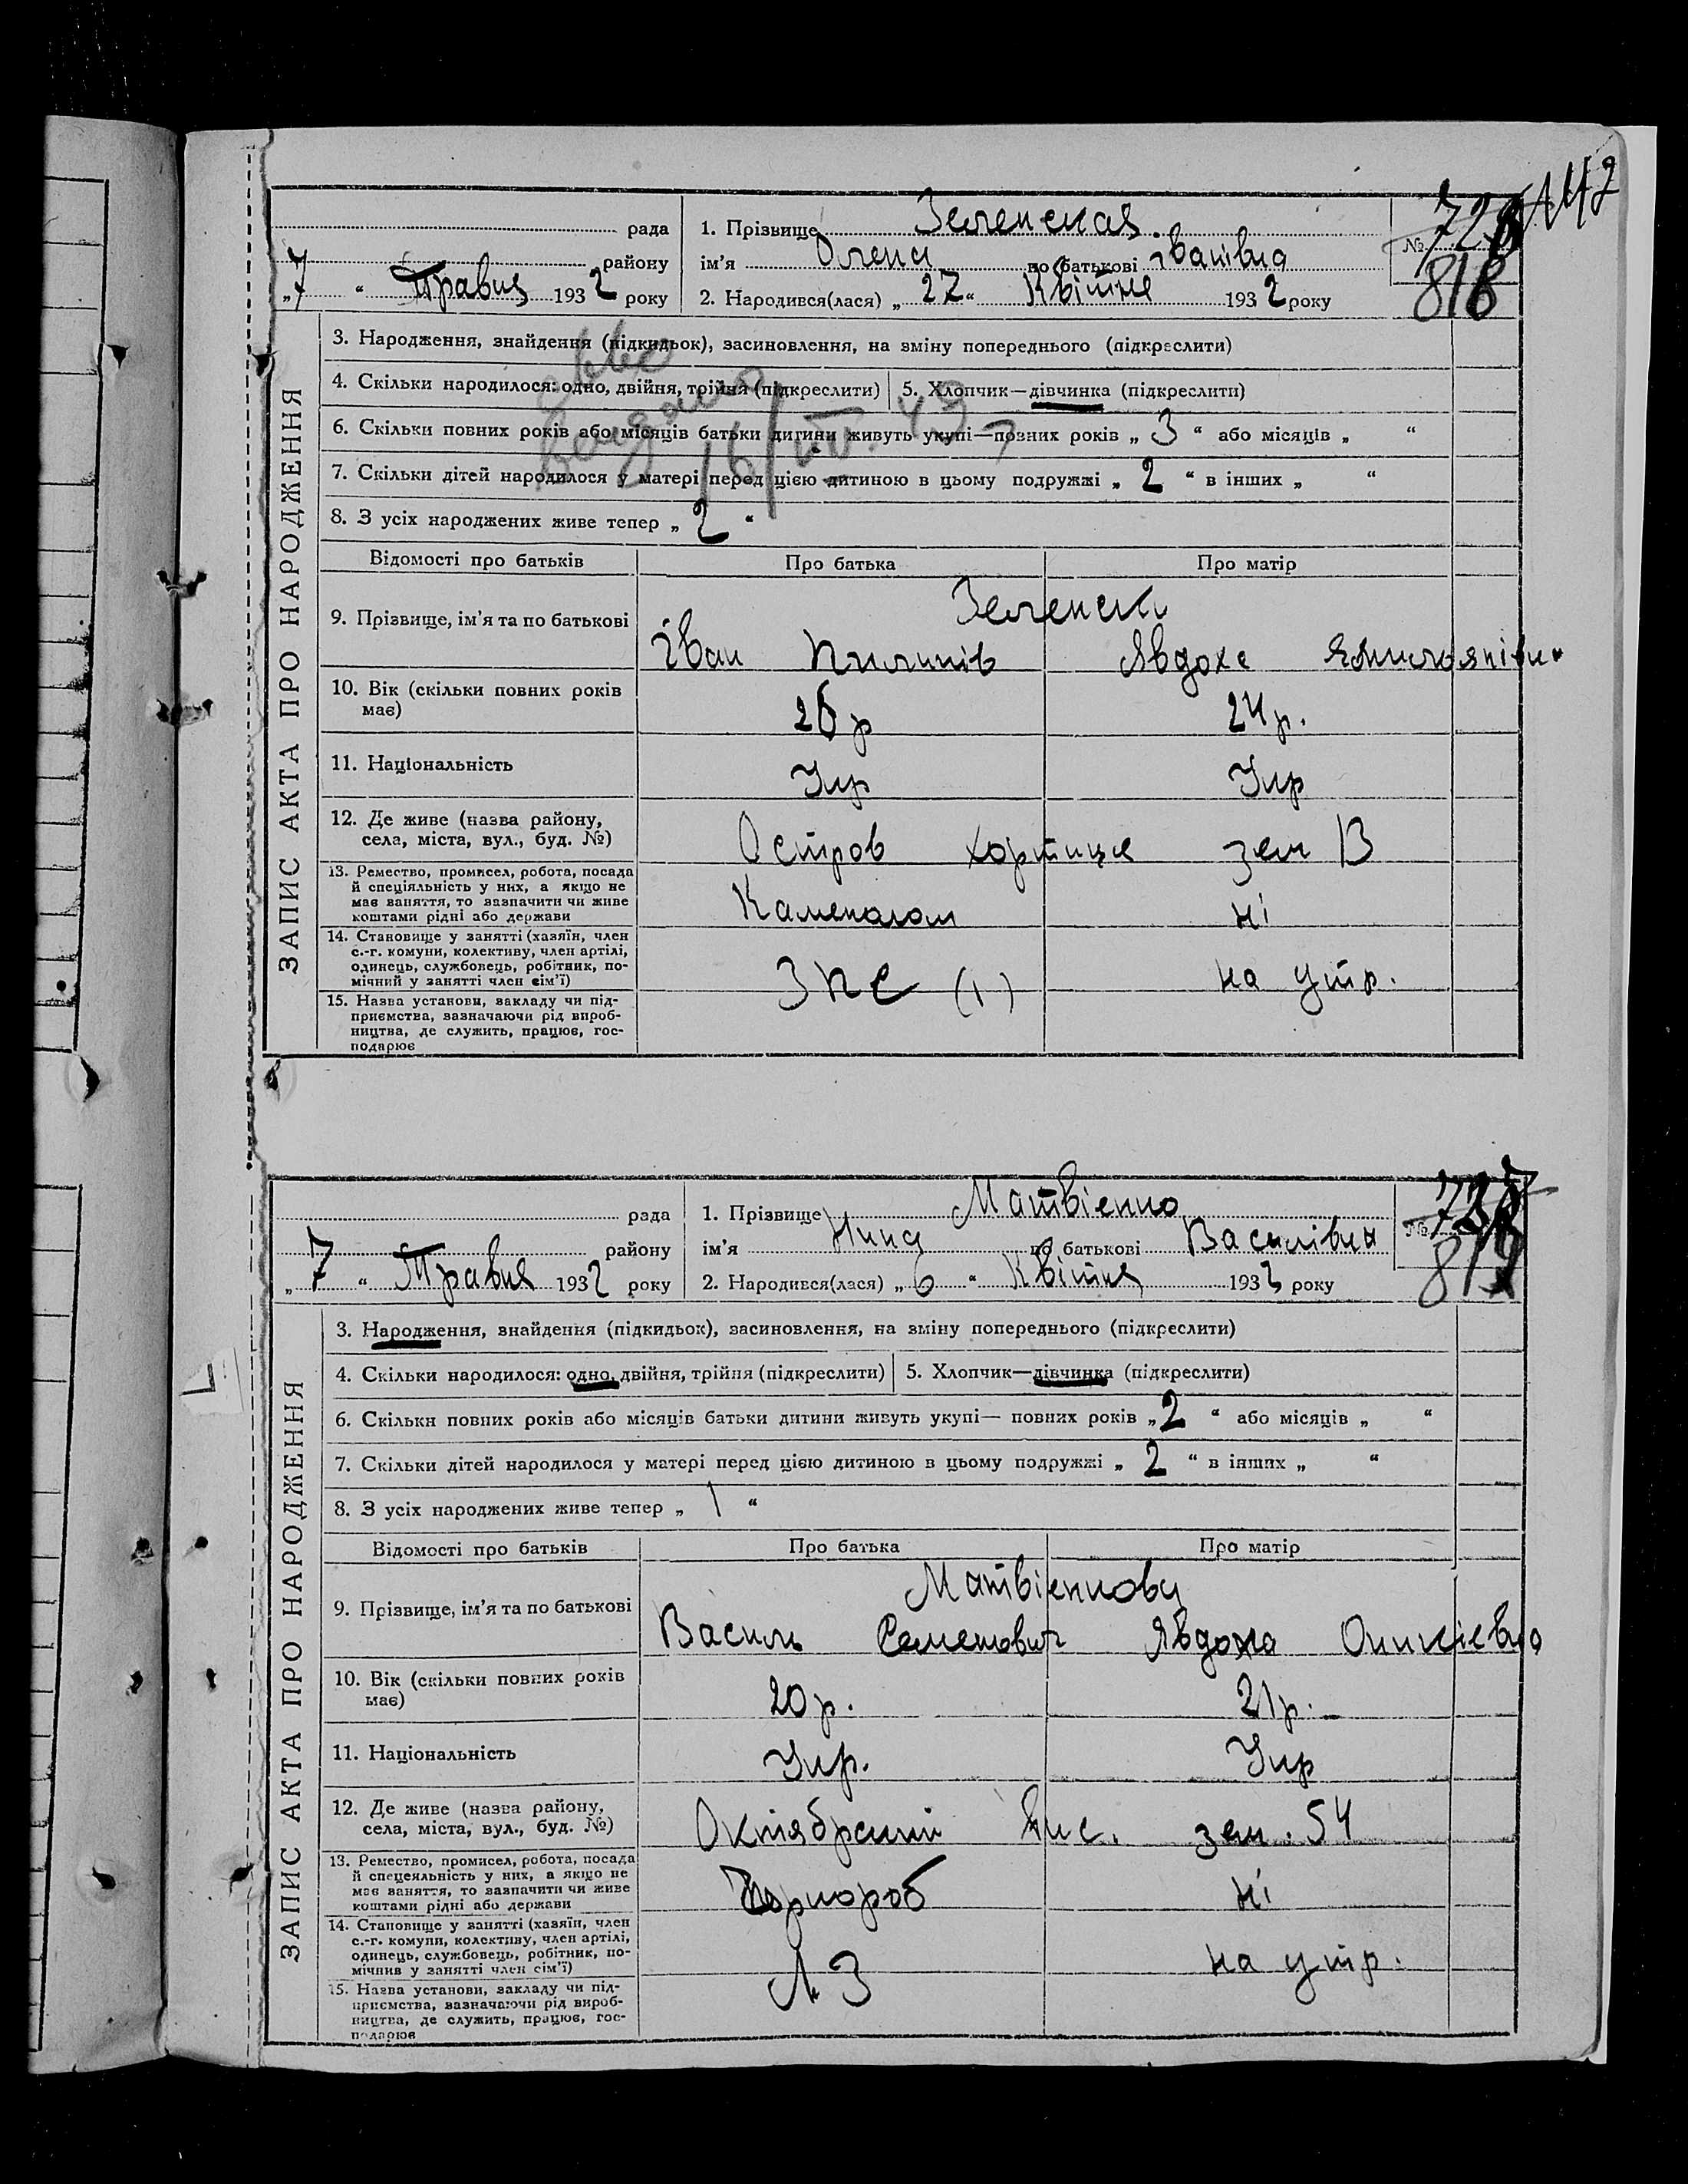 142
рада 1. Прізвище Зеленская №
району ім'я Олена по батькові Іванівна 818
„7“ Травня 1932 року 2. Народився(лася) „27“ Квітня 1932 року
ЗАПИС АКТА ПРО НАРОДЖЕННЯ
3. Народження, знайдення (підкидьок), засиновлення, на зміну попереднього (підкреслити)
4. Скільки народилося: одно, двійня, трійня (підкреслити) 5. Хлопчик—дівчинка (підкреслити)
6. Скільки повних років або місяців батьки дитини живуть укупі—повних років „ 3 “ або місяців „ “
7. Скільки дітей народилося у матері перед цією дитиною в цьому подружжі „ 2 “ в інших „ “
8. З усіх народжених живе тепер „ 2 “
Відомості про батьків Про батька Про матір
Зеленски
9. Прізвище, ім'я та по батькові Іван Пилипів Явдоха
10. Вік (скільки повних років має) 26 р 24 р.
11. Національність Укр Укр
12. Де живе (назва району,
села, міста, вул., буд. №) Остров Хортиця зем 13
13. Ремество, промисел, робота, посада
й спеціяльність у них, а якщо не
має заняття, то зазначити чи живе
коштами рідні або держави Каменолом ні
14. Становище у занятті (хазяїн, член
с.-г. комуни, колективу, член артілі,
одинець, службовець, робітник, по-
мічний у занятті член сім'ї) на утр.
15. Назва установи, закладу чи під-
приємства, зазначаючи рід вироб-
ництва, де служить, працює, гос-
подарює ЗПС (1)
рада 1. Прізвище Матвієнко №
району ім'я Нина по батькові Василівна 819
„7“ Травня 1932 року 2. Народився(лася) „6“ Квітня 1932 року
ЗАПИС АКТА ПРО НАРОДЖЕННЯ
3. Народження, знайдення (підкидьок), засиновлення, на зміну попереднього (підкреслити)
4. Скільки народилося: одно, двійня, трійня (підкреслити) 5. Хлопчик—дівчинка (підкреслити)
6. Скільки повних років або місяців батьки дитини живуть укупі— повних років „ 2 “ або місяців „ “
7. Скільки дітей народилося у матері перед цією дитиною в цьому подружжі „ 2 “ в інших „ “
8. З усіх народжених живе тепер „ 1 “
Відомості про батьків Про батька Про матір
Матвієнкови
9. Прізвище, ім'я та по батькові Василь Семенович Явдоха
10. Вік (скільки повних років має) 20 р. 21 р.
11. Національність Укр. Укр
12. Де живе (назва району,
села, міста, вул., буд. №) Октябрський зем. 54
13. Ремество, промисел, робота, посада
й спецеяльність у них, а якщо не
має заняття, то зазначити чи живе
коштами рідні або держави Чорнороб ні
14. Становище у занятті (хазяїн, член
с.-г. комуни, колективу, член артілі,
одинець, службовець, робітник, по-
мічнив у занятті член сім'ї) на утр.
15. Назва установи, закладу чи під-
приємства, зазначаючи рід вироб-
ництва, де служить, працює, гос-
подарює